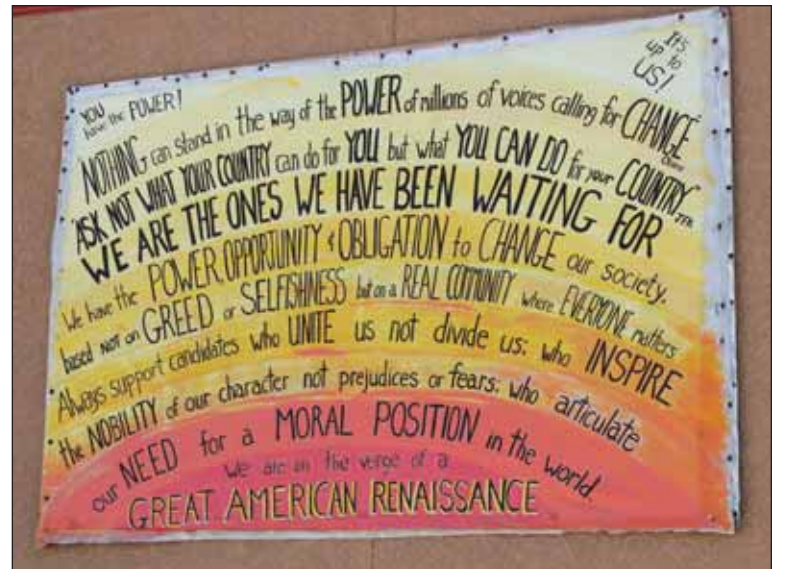 YOU
have the POWER!
It's
up to
US!
"NOTHING can stand in the way of the POWER of millions of voices calling for CHANGE"
Obama
"ASK NOT WHAT YOUR COUNTRY can do for YOU but what YOU CAN DO for your COUNTRY" JFK
WE ARE THE ONES WE HAVE BEEN WAITING FOR
We have the POWER, OPPORTUNITY & OBLIGATION to CHANGE our society.
based not on GREED or SELFISHNESS but on a REAL COMMUNITY where EVERYONE matters
Always support candidates who UNITE us not divide us: who INSPIRE
the NOBILITY of our character not prejudices or fears: who articulate
our NEED for a MORAL POSITION in the world.
We are on the verge of a
GREAT AMERICAN RENAISSANCE